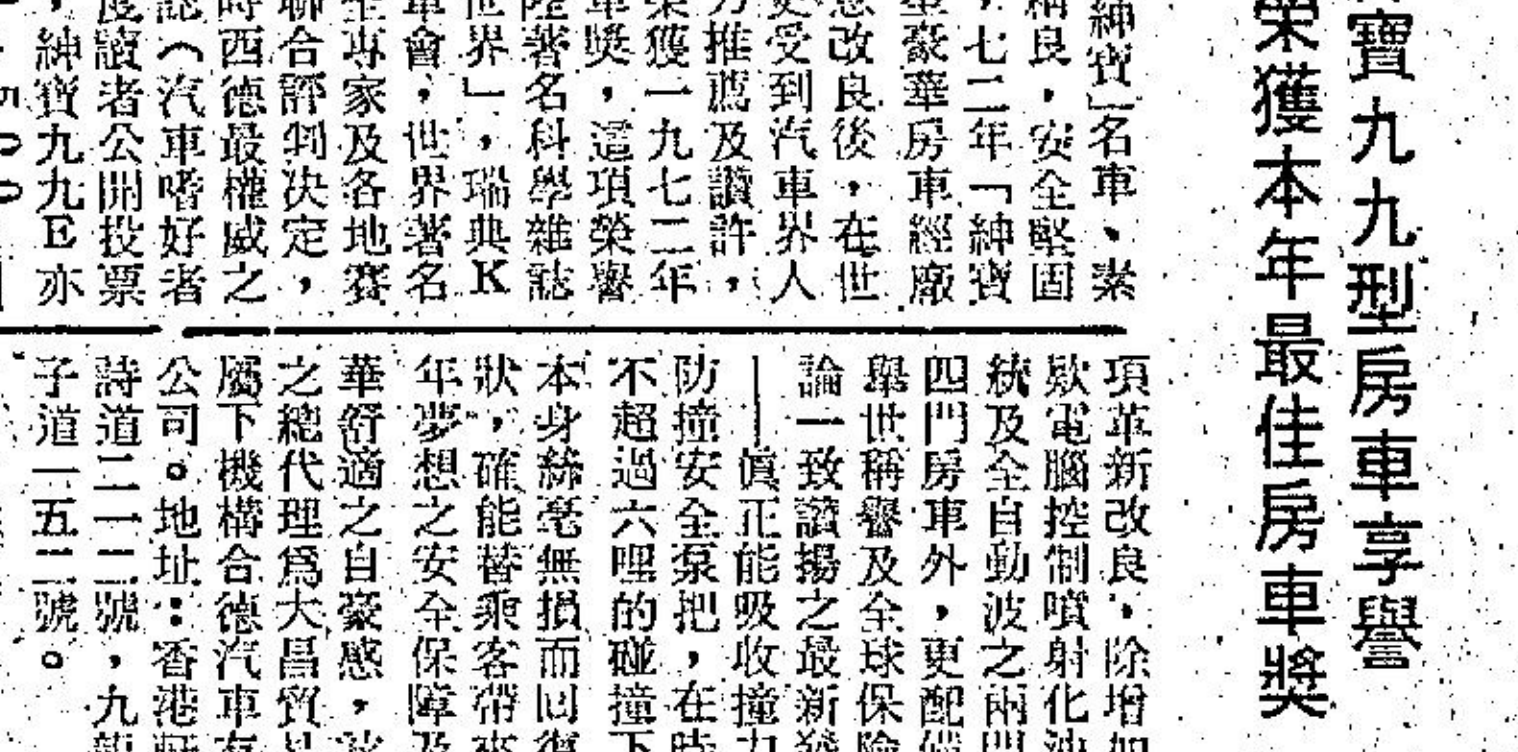 寶九九型房車享譽
榮獲本年最佳房車獎
紳寶」名車、素
良,安全堅固
七二年「紳寶
豪華房車經廠
改良後,在世
受到汽車界人
推薦及讚許,
獲一九七二年
獎,這項榮譽
著名科學雜誌
世界」,瑞典K
車會,世界著名
專家及各地賽
聯合評判决定,
時西德最權威之
誌(汽車嗜好者
讀者公開投票
,紳寶九九E亦
項革新改良,除增加
欵電腦控制噴射化油
統及全自動波之兩門
四門房車外,更配備
舉世稱譽及全球保險
論一致讚揚之最新發
—眞正能吸收撞力
防撞安全泵把,在時
不超過六哩的碰撞下
本身絲毫無損而回復
狀,確能替乘客帶來
年夢想之安全保障及
華舒適之自豪感,
之總代理爲大昌貿
屬下機構合德汽車有
公司。地址:香港莊
詩道二一二號,九龍
子道一五二號。